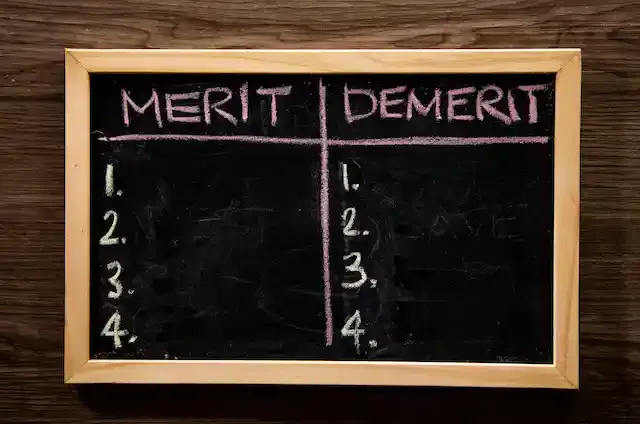 MERIT DEMERIT
1. 1.
2. 2.
3. 3.
4. 4.